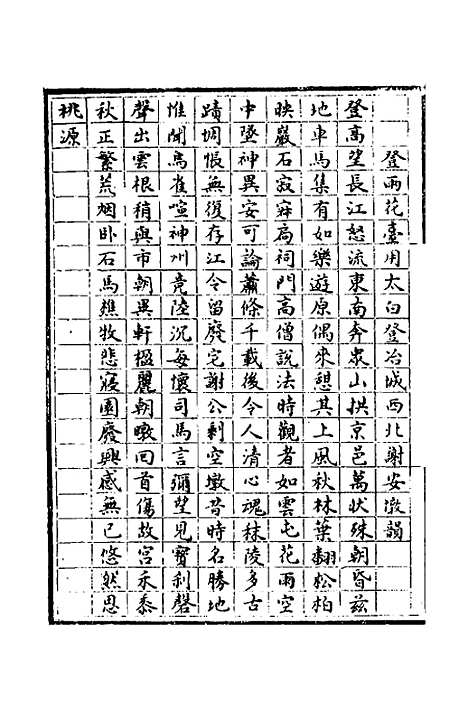 登雨花臺用太白登冶城西北謝安墩韻
登高望長江怒流東南奔衆山拱京邑萬狀殊朝昏茲
地車馬集有如樂遊原偶來憩其上風秋林葉翻松柏
映巖石寂寂扃祠門高僧說法時觀者如雲屯花雨空
中墜神異安可論蕭條千載後令人清心魂秣陵多古
蹟惆悵無復存江令留廢宅謝公剩空墩昔時名勝地
惟聞鳥雀喧神州竟陸沉每懷司馬言彌望見寶刹磬
聲出雲根稍與市朝異軒楹麗朝暾回首傷故宮禾黍
秋正繁荒烟卧石馬樵牧悲寢園廢興感無已悠然思
桃源